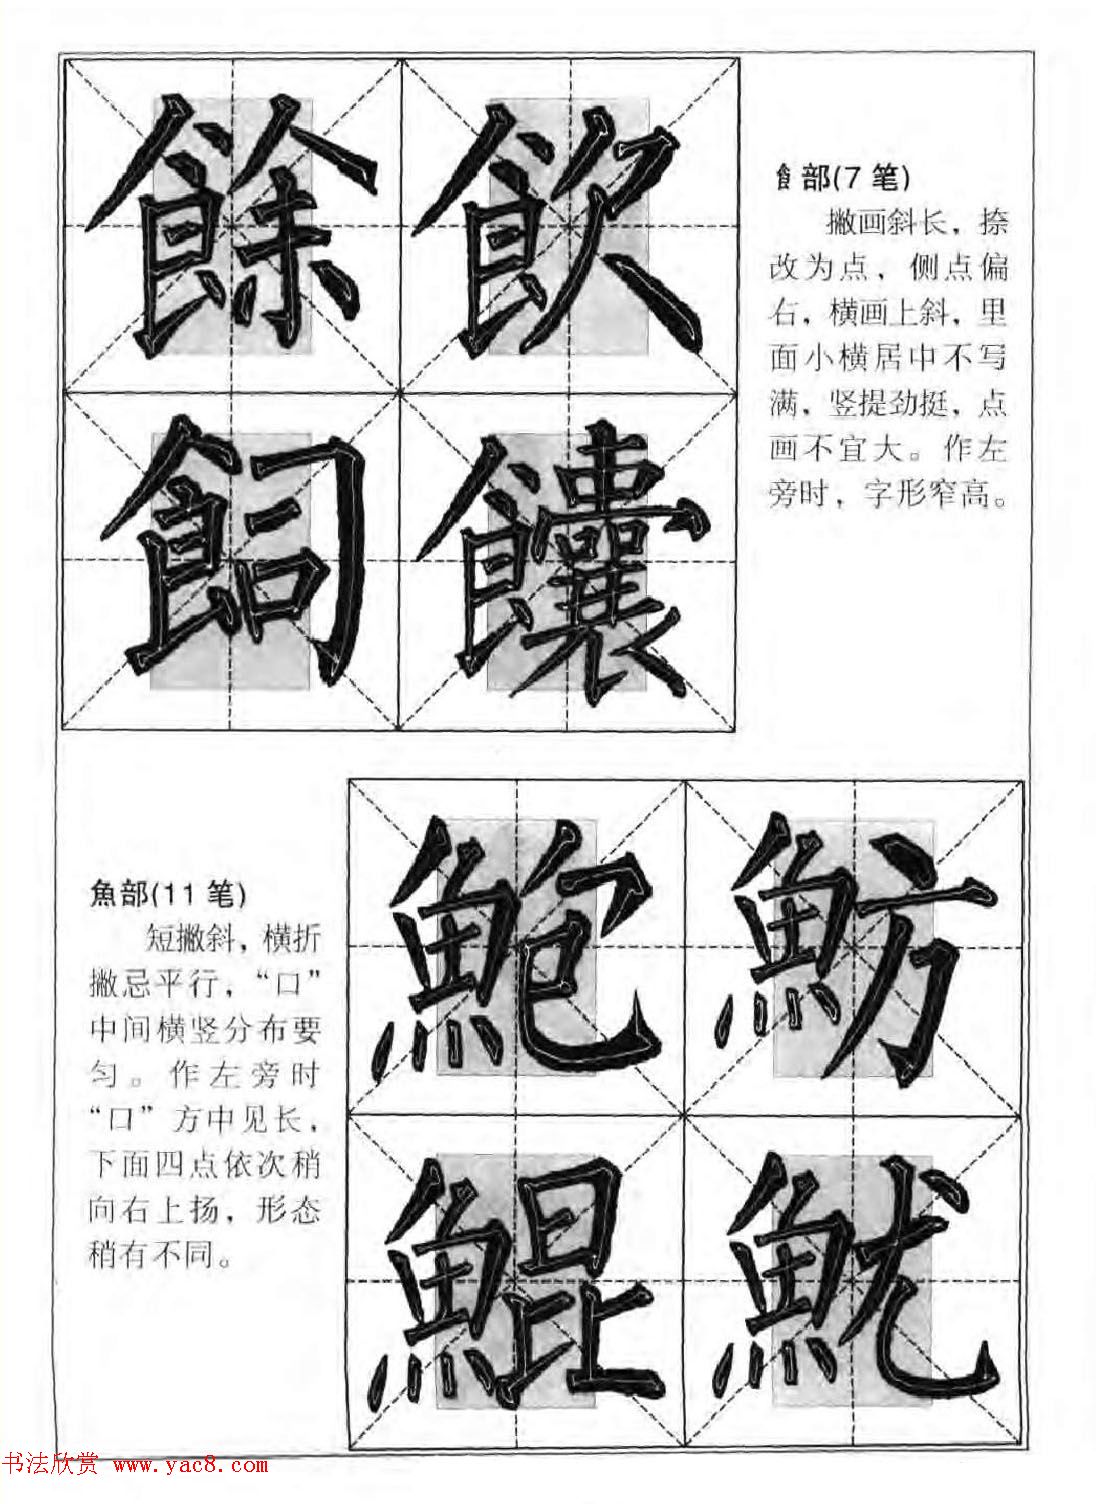 餘飲
飼饢
飠部(7 笔)
撇画斜长，捺
改为点，侧点偏
右，横画上斜，里
面小横居中不写
满，竖提劲挺，点
画不宜大。作左
旁时，字形窄高。
鮑魴
鯤魷
魚部(11 笔)
短撇斜，横折
撇忌平行，“口”
中间横竖分布要
匀。作左旁时
“口”方中见长，
下面四点依次稍
向右上扬，形态
稍有不同。
书法欣赏 www.yac8.com